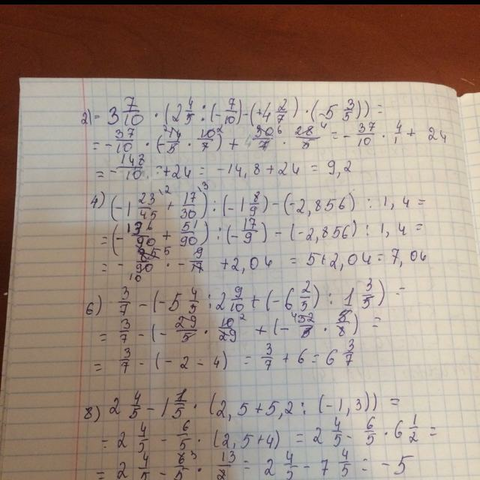 2) - 3 7/10 · (2 4/5 : (- 7/10) - (+4 2/7) · (-5 3/5)) =
= - 37/10 · (- 14/5 · 10/7) + 30/7 · 28/5 = - 37/10 · 4/1 + 24
= - 148/10 + 24 = - 14,8 + 24 = 9,2
4) (-1 23/45 + 17/30) : (-1 8/9) - (-2,856) : 1,4 =
= (- 136/90 + 51/90) : (- 17/9) - (-2,856) : 1,4 =
= - 85/90 · - 9/17 + 2,04 = 5 + 2,04 = 7,04
6) 3/7 - (-5 4/5 : 2 9/10 + (-6 2/5) : 1 3/5) =
= 3/7 - (- 29/5 · 10/29 + (- 32/5 · 5/8) =
= 3/7 - (-2 - 4) = 3/7 + 6 = 6 3/7
8) 2 4/5 - 1 1/5 · (2,5 + 5,2 : (-1,3)) =
= 2 4/5 - 6/5 · (2,5 + 4) = 2 4/5 - 6/5 · 6 1/2 =
= 2 4/5 - 6/5 · 13/2 = 2 4/5 - 7 4/5 = - 5